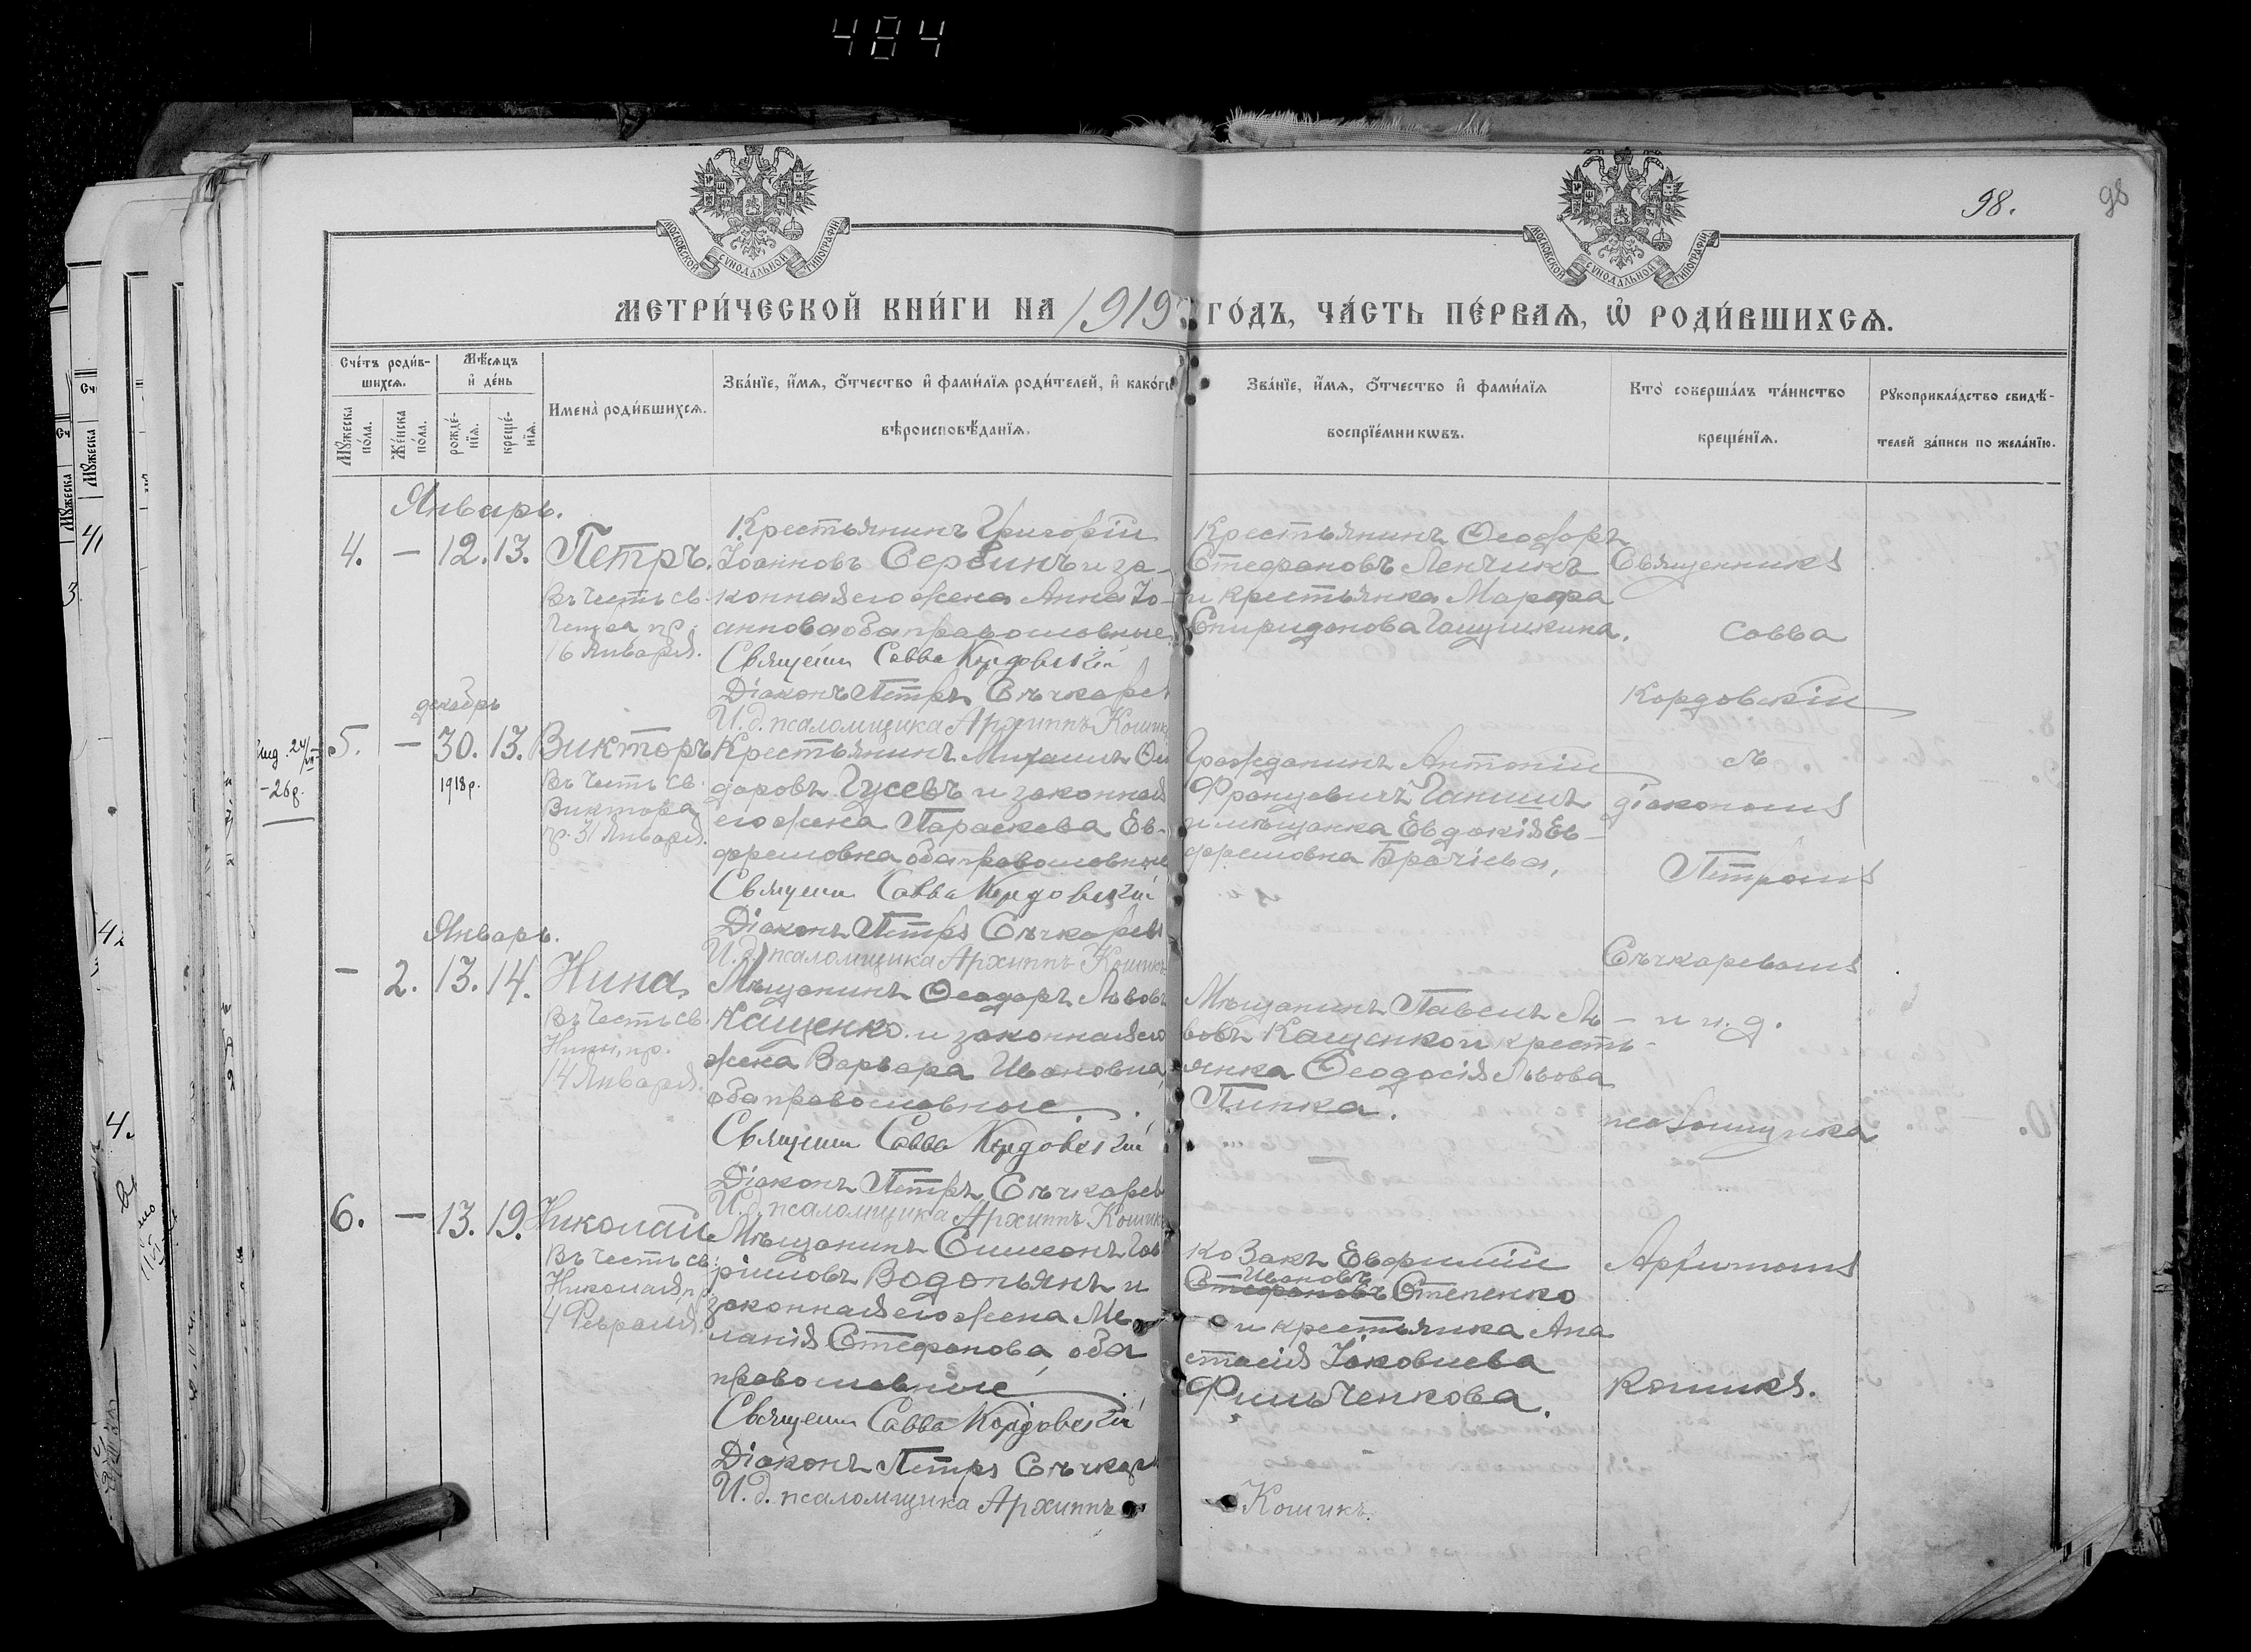 484
98.
98
МОСКОВСКОЙ СѴНОДАЛЬНОЙ ТИПОГРАФІИ
МОСКОВСКОЙ СѴНОДАЛЬНОЙ ТИПОГРАФІИ
МЕТРИ́ЧЕСКОЙ КНИ́ГИ НА 1919 ГО́ДЪ, ЧА́СТЬ ПЕ́РВАѦ, Ѡ҆ РОДИ́ВШИХСѦ.
Сче́тъ роди́в-
шихсѧ.
Мꙋжеска по́ла.
Же́нска по́ла.
Мѣ́сѧцъ и҆ де́нь
рожде́-нїѧ.
креще́-нїѧ.
Имена̀ роди́вшихсѧ.
Зва́нїе, и҆́мѧ, ѻ҆́тчество и҆ фами́лїѧ роди́телей, и҆ како́гѡ
вѣроисповѣ́данїѧ.
Зва́нїе, и҆́мѧ, ѻ҆́тчество и҆ фами́лїѧ
воспрїе́мникѡвъ.
Кто̀ соверша́лъ та́инство
креще́нїѧ.
Рꙋкоприкла́дство свидѣ́-
телей за́писи по жела́нїю.
Январь.
4. — 12. 13. Петръ.
Въ честь св.
Петра пр.
16 Января.
Крестьянинъ Григорій
Іоанновъ Сербинъ и за-
конная его жена Анна Іо-
аннова оба православные.
Священ Савва Кордовскій
Діаконъ Петръ Сѣчкарев
И. д. псаломщика Архиппъ Кошикъ
Крестьянинъ Ѳеодоръ
Стефановъ Ленчикъ
и крестьянка Марфа
Спиридонова
Священникъ
Савва
Кордовскій
съ
діакономъ
Петромъ
Сѣчкаревымъ
— и и. д.
псаломщика
Архипомъ
Кошикъ.
декабрь
5. — 30. 13. Викторъ
1918 р.
Въ честь св.
Виктора
пр. 31 Января.
Крестьянинъ Михаилъ Ѳео
доровъ Гусевъ и законная
его жена Параскева Ев-
фремовна оба православные
Священ Савва Кордовскій
Діаконъ Петръ Сѣчкарев
И. д. псаломщика Архиппъ Кошикъ
Гражданинъ Антоній
Францевичъ
и мѣщанка Евдокія Ев-
фремовна
24/
-26 р.
Январь.
— 2. 13. 14. Нина,
Въ честь св.
Нины, пр.
14 Января.
Мѣщанинъ Ѳеодоръ Львовъ
Кащенко и законная его
жена Варвара Ивановна,
оба православные.
Священ Савва Кордовскій
Діаконъ Петръ Сѣчкарев
И. д. псаломщика Архиппъ Кошикъ
Мѣщанинъ Павелъ Ль-
вовъ Кащенко и кресть-
янка Ѳеодосія Львова
Пинка.
6. — 13. 19. Николай
Въ честь св.
Николая, пр.
4 Февраля.
Мѣщанинъ Симеонъ Гав
ріиловъ Водопьянъ и
законная его жена Ме-
ланія Стефанова, оба
православные
Священ Савва Кордовскій
Діаконъ Петръ Сѣчкарев
И. д. псаломщика Архиппъ Кошикъ.
козакъ Евфимій
Ивановъ
Стефановъ Степенко
и крестьянка Ана
стасія Іаковлева
Фильченкова.